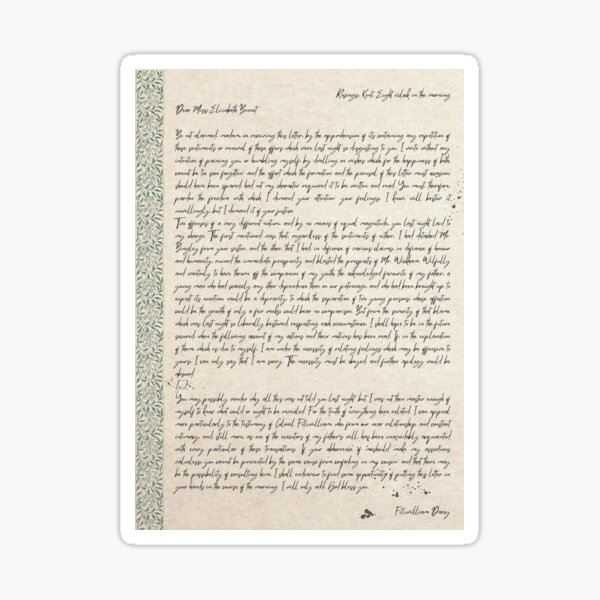 Rosings, Kent. Eight o'clock in the morning
Dear Miss Elizabeth Bennet
Be not alarmed, madam, on receiving this letter, by the apprehension of its containing any repetition of
those sentiments or renewal of those offers which were last night so disgusting to you. I write without any
intention of paining you, or humbling myself, by dwelling on wishes which, for the happiness of both,
cannot be too soon forgotten; and the effort which the formation and the perusal of this letter must occasion,
should have been spared, had not my character required it to be written and read. You must, therefore,
pardon the freedom with which I demand your attention; your feelings, I know, will bestow it
unwillingly, but I demand it of your justice.
Two offenses of a very different nature, and by no means of equal magnitude, you last night laid to
my charge. The first mentioned was, that, regardless of the sentiments of either, I had detached Mr.
Bingley from your sister, and the other, that I had, in defiance of various claims, in defiance of honour
and humanity, ruined the immediate prosperity and blasted the prospects of Mr. Wickham. Wilfully
and wantonly to have thrown off the companion of my youth, the acknowledged favourite of my father, a
young man who had scarcely any other dependence than on our patronage, and who had been brought up to
expect its exertion, would be a depravity, to which the separation of two young persons, whose affection
could be the growth of only a few weeks, could bear no comparison. But from the severity of that blame
which was last night so liberally bestowed, respecting each circumstance, I shall hope to be in the future
secured, when the following account of my actions and their motives has been read. If, in the explanation
of them, which is due to myself, I am under the necessity of relating feelings which may be offensive to
yours, I can only say that I am sorry. The necessity must be obeyed, and further apology would be
absurd.
You may possibly wonder why all this was not told you last night; but I was not then master enough of
myself to know what could or ought to be revealed. For the truth of everything here related, I can appeal
more particularly to the testimony of Colonel Fitzwilliam, who, from our near relationship and constant
intimacy, and, still more, as one of the executors of my father's will, has been unavoidably acquainted
with every particular of these transactions. If your abhorrence of me should make my assertions
valueless, you cannot be prevented by the same cause from confiding in my cousin; and that there may
be the possibility of consulting him, I shall endeavour to find some opportunity of putting this letter in
your hands in the course of the morning. I will only add, God bless you.
Fitzwilliam Darcy